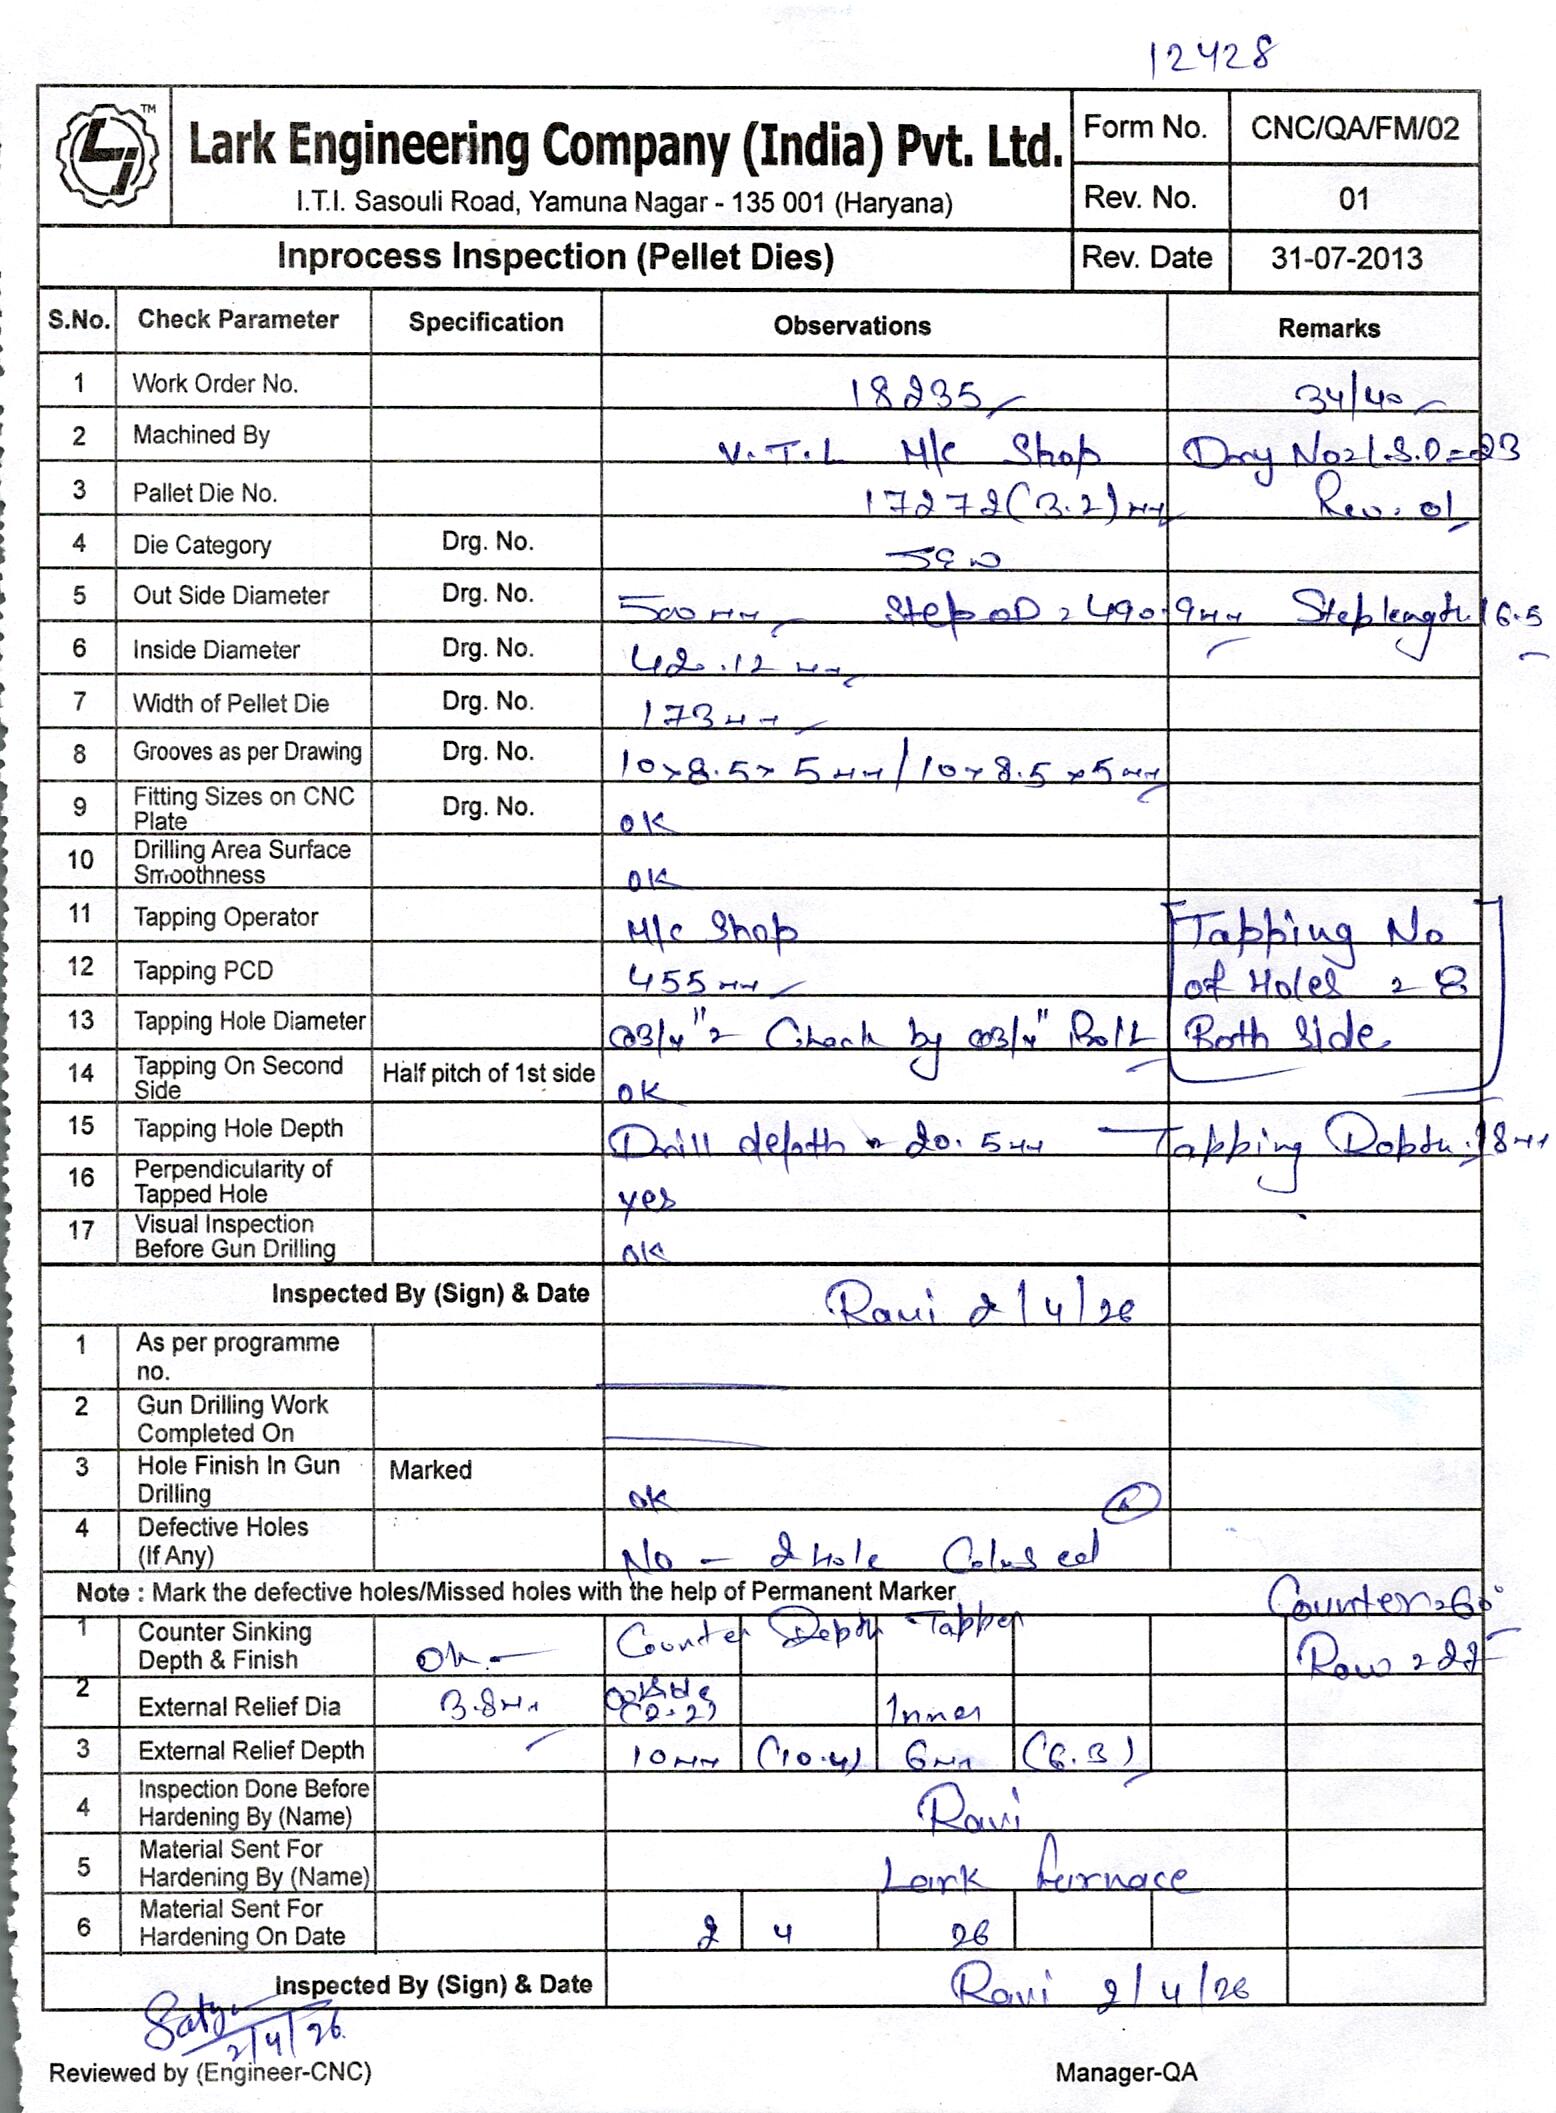 12428
TM
Lark Engineering Company (India) Pvt. Ltd.
I.T.I. Sasouli Road, Yamuna Nagar - 135 001 (Haryana)
Form No. CNC/QA/FM/02
Rev. No. 01
Inprocess Inspection (Pellet Dies) Rev. Date 31-07-2013
S.No. Check Parameter Specification Observations Remarks
1 Work Order No. 18235 34/40
2 Machined By V.T.L M/c Shop No = L.S.D = 23
3 Pallet Die No. 17272 (3.2) mm Rev. 01
4 Die Category Drg. No.
5 Out Side Diameter Drg. No. 500 mm Step OD = 490.9 mm Step length 16.5
6 Inside Diameter Drg. No. 42.12 mm
7 Width of Pellet Die Drg. No. 173 mm
8 Grooves as per Drawing Drg. No. 10 x 8.5 x 5 mm / 10 x 8.5 x 5 mm
9 Fitting Sizes on CNC Plate Drg. No. OK
10 Drilling Area Surface Smoothness OK
11 Tapping Operator M/c Shop Tapping No
12 Tapping PCD 455 mm of Holes = 8
13 Tapping Hole Diameter 3/4" = Check by 3/4" Bolt Both Side
14 Tapping On Second Side Half pitch of 1st side OK
15 Tapping Hole Depth Drill depth = 20.5 mm Tapping Depth 18 mm
16 Perpendicularity of Tapped Hole yes
17 Visual Inspection Before Gun Drilling OK
Inspected By (Sign) & Date Ravi 2/4/26
1 As per programme no.
2 Gun Drilling Work Completed On
3 Hole Finish In Gun Drilling Marked OK
4 Defective Holes (If Any) No - 2 Hole
Note : Mark the defective holes/Missed holes with the help of Permanent Marker Counter = 60°
1 Counter Sinking Depth & Finish Ok Counter Depth Tapper Row = 22
2 External Relief Dia 3.8 mm Inner
3 External Relief Depth 10 mm (10.4) 6 mm (6.3)
4 Inspection Done Before Hardening By (Name) Ravi
5 Material Sent For Hardening By (Name) Lark furnace
6 Material Sent For Hardening On Date 2 4 26
Inspected By (Sign) & Date Ravi 2/4/26
Satya
2/4/26
Reviewed by (Engineer-CNC) Manager-QA